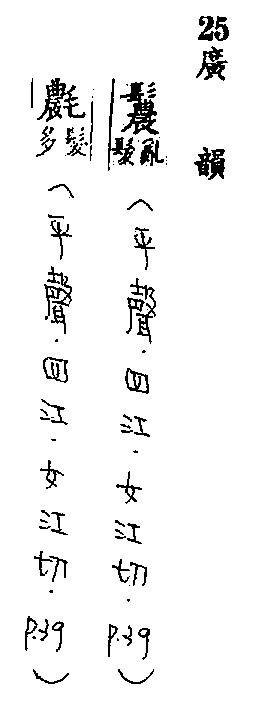 25廣韻
鬞亂髮(平聲.四江.女江切.P.39)
𣰊髮多(平聲.四江.女江切.P.39)